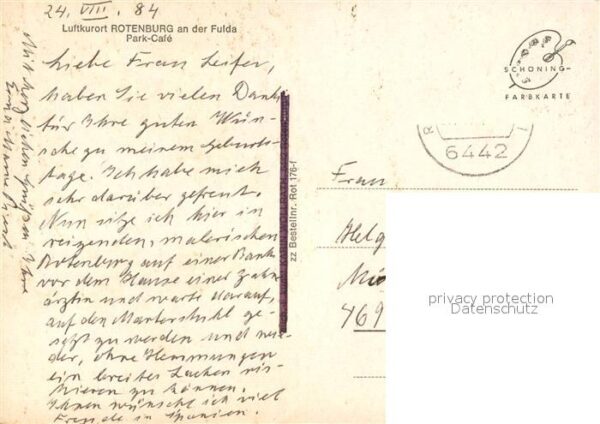 24. VIII. 84
Luftkurort ROTENBURG an der Fulda
Park-Café
Liebe Frau Leifer,
haben Sie vielen Dank
für Ihre guten Wün-
sche zu meinem Geburts-
tage. Ich habe mich
sehr darüber gefreut.
Nun sitze ich hier in
reizenden, malerischen
Rotenburg auf einer Bank
vor dem Hause einer Zahn-
ärztin und warte darauf,
auf den Marterstuhl ge-
setzt zu werden und wie-
der, ohne Hemmungen
ein breites Lachen ris-
kieren zu können.
Ihnen wünsche ich viel
Freude in Spanien.
Mit herzlichen Grüßen Ihre
zz Bestellnr. Rot 176-f
SCHÖNING-
FARBKARTE
6442
Frau
Helg
469
privacy protection
Datenschutz